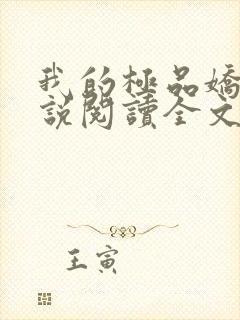 我的極品嬌
說閱讀全文
王寅